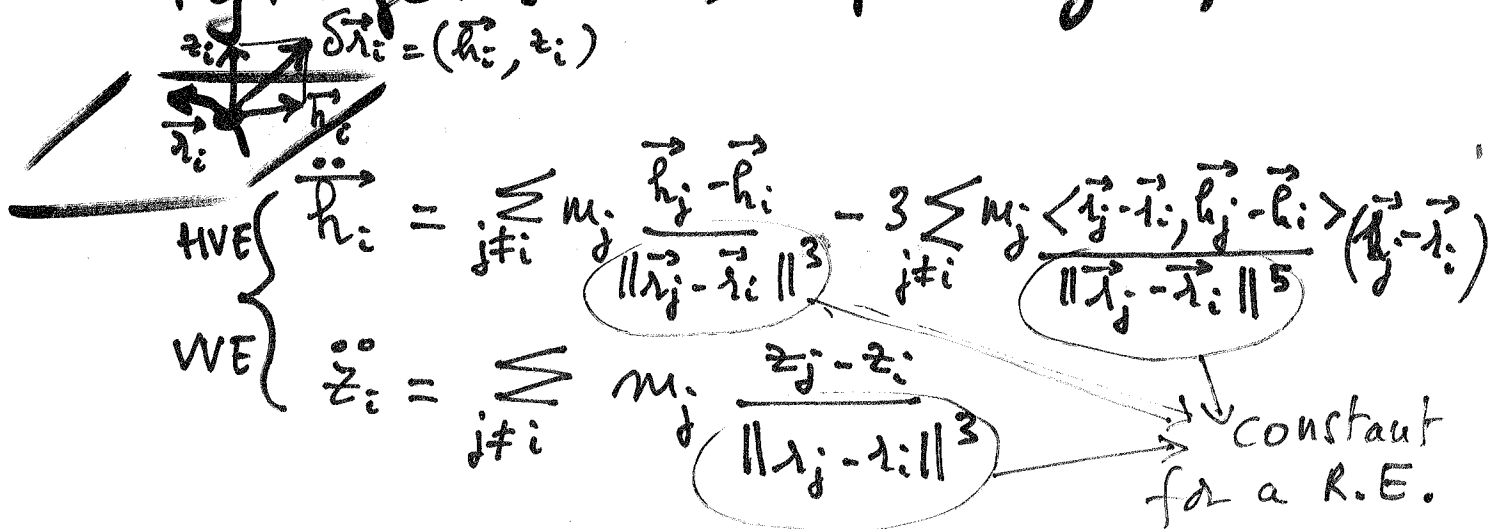 z_i δ\vec{r}_i = (\vec{h}_i, z_i)
\vec{r}_i \vec{h}_i
HVE { \ddot{\vec{h}}_i = Σ_{j≠i} m_j \frac{\vec{h}_j - \vec{h}_i}{||\vec{r}_j - \vec{r}_i||^3} - 3 Σ_{j≠i} m_j \frac{<\vec{r}_j - \vec{r}_i, \vec{h}_j - \vec{h}_i>}{||\vec{r}_j - \vec{r}_i||^5} (\vec{r}_j - \vec{r}_i)
VVE \ddot{z}_i = Σ_{j≠i} m_j \frac{z_j - z_i}{||r_j - r_i||^3}
constant
for a R.E.